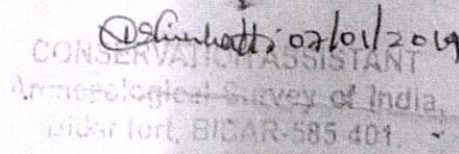 07/01/2019
CONSERVATION ASSISTANT
Archaeological Survey of India,
Bidar fort, BIDAR-585 401.